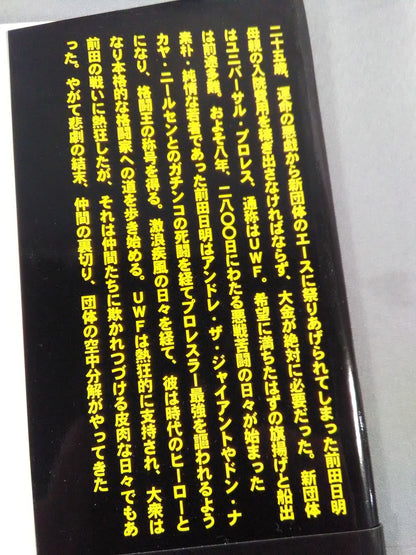 二十五歳、運命の悪戯から新団体のエースに祭りあげられてしまった前田日明
母親の入院費用を稼ぎ出さなければならず、大金が絶対に必要だった。新団体
はユニバーサル・プロレス、通称はUWF。希望に満ちたはずの旗揚げと船出
は前途多難、およそ八年、二八〇〇日にわたる悪戦苦闘の日々が始まった
素朴・純情な若者であった前田日明はアンドレ・ザ・ジャイアントやドン・ナ
カヤ・ニールセンとのガチンコの死闘を経てプロレスラー最強を謳われるよう
になり、格闘王の称号を得る。激浪疾風の日々を経て、彼は時代のヒーローと
なり本格的な格闘家への道を歩き始める。UWFは熱狂的に支持され、大衆は
前田の戦いに熱狂したが、それは仲間たちに欺かれつづける皮肉な日々でもあ
った。やがて悲劇の結末、仲間の裏切り、団体の空中分解がやってきた